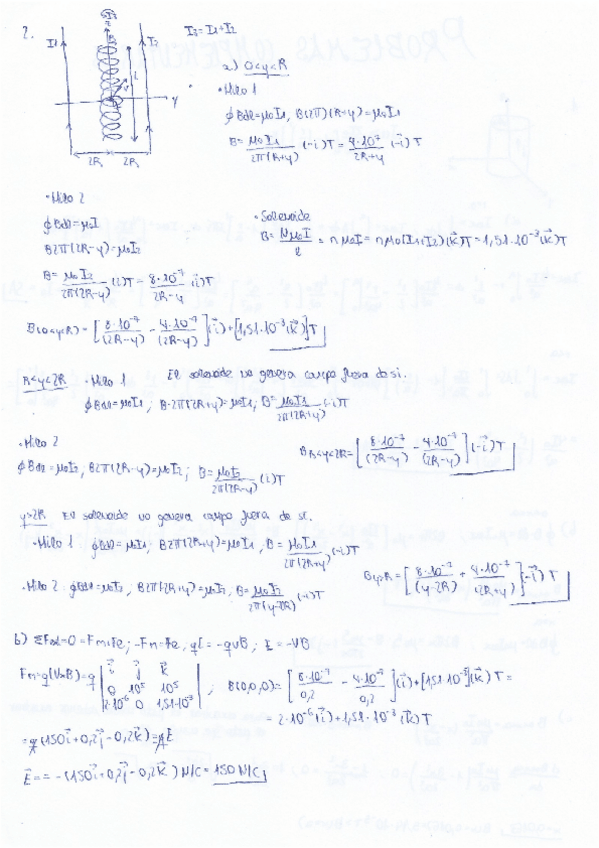 2.
I₃ = I₁ + I₂
I₁ I₂ R L y
2R 2R
a) 0<y<R
• Hilo 1
∮Bdl=μ₀I₁, B(2π)(R+y)=μ₀I₁
B= μ₀I₁/2π(R+y) (-i)T = 4·10⁻⁷/2R+y (-i)T
• Hilo 2
∮Bdl=μ₀I
B2π(2R-y)=μ₀I₂
B= μ₀I₂/2π(2R-y) (i)T= 8·10⁻⁷/2R-y (i)T
• Solenoide
B= Nμ₀I/l = nμ₀I = nμ₀(I₁+I₂)(k)T = 1,51·10⁻³(k)T
B(0<y<R) = [8·10⁻⁷/(2R-y) - 4·10⁻⁷/(2R-y)](i)+[1,51·10⁻³(k)]T
R<y<2R • Hilo 1 El solenoide no genera campo fuera de si.
∮Bdl=μ₀I₁; B·2π(2R+y)=μ₀I₁; B= μ₀I₁/2π(2R+y) (-i)T
• Hilo 2
∮Bdl=μ₀I₂; B2π(2R-y)=μ₀I₂; B= μ₀I₂/2π(2R-y) (i)T
B R<y<2R= [8·10⁻⁷/(2R-y) - 4·10⁻⁷/(2R-y)](-i)T
y>2R El solenoide no genera campo fuera de si.
• Hilo 1 ∮Bdl=μ₀I₁; B2π(2R+y)=μ₀I₁, B= μ₀I₁/2π(2R+y) (-i)T
• Hilo 2: ∮Bdl=μ₀I₂; B2π(2R+y)=μ₀I₂, B= μ₀I₂/2π(y-2R) (-i)T
B y>R = [8·10⁻⁷/(y-2R) + 4·10⁻⁷/(2R+y)](-i)T
b) ΣF =0 = Fm+Fe; -Fm=Fe, qE = -qvB; E=-VB
Fm=q(VxB)=q | i j k |
| 0 10⁵ 10⁵ |
| 2·10⁻⁶ 0 1,51·10⁻³ |
; B(0,0,0)= [8·10⁻⁷/0,2 - 4·10⁻⁷/0,2](i)+[1,51·10⁻³](k)T =
= 2·10⁻⁶(i)+1,51·10⁻³(k)T
= q(150i+0,2j-0,2k)=qE
E= = -(150i+0,2j-0,2k)N/C= 150 N/C